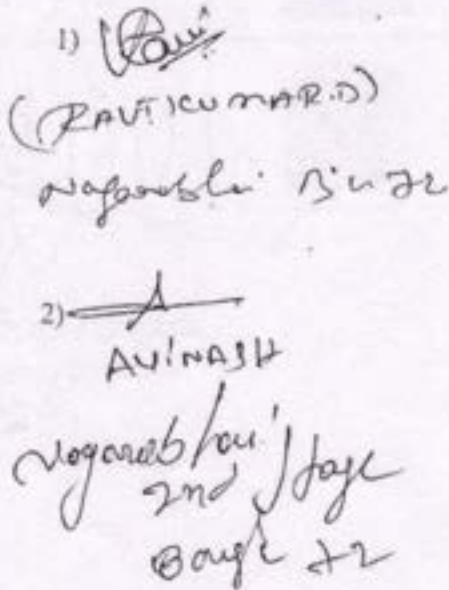 1) Ravi
(RAVIKUMAR.D)
Nagarabhavi B'lr 72
2)
AVINASH
Nagarabhavi
2nd Stage
Bangl 72